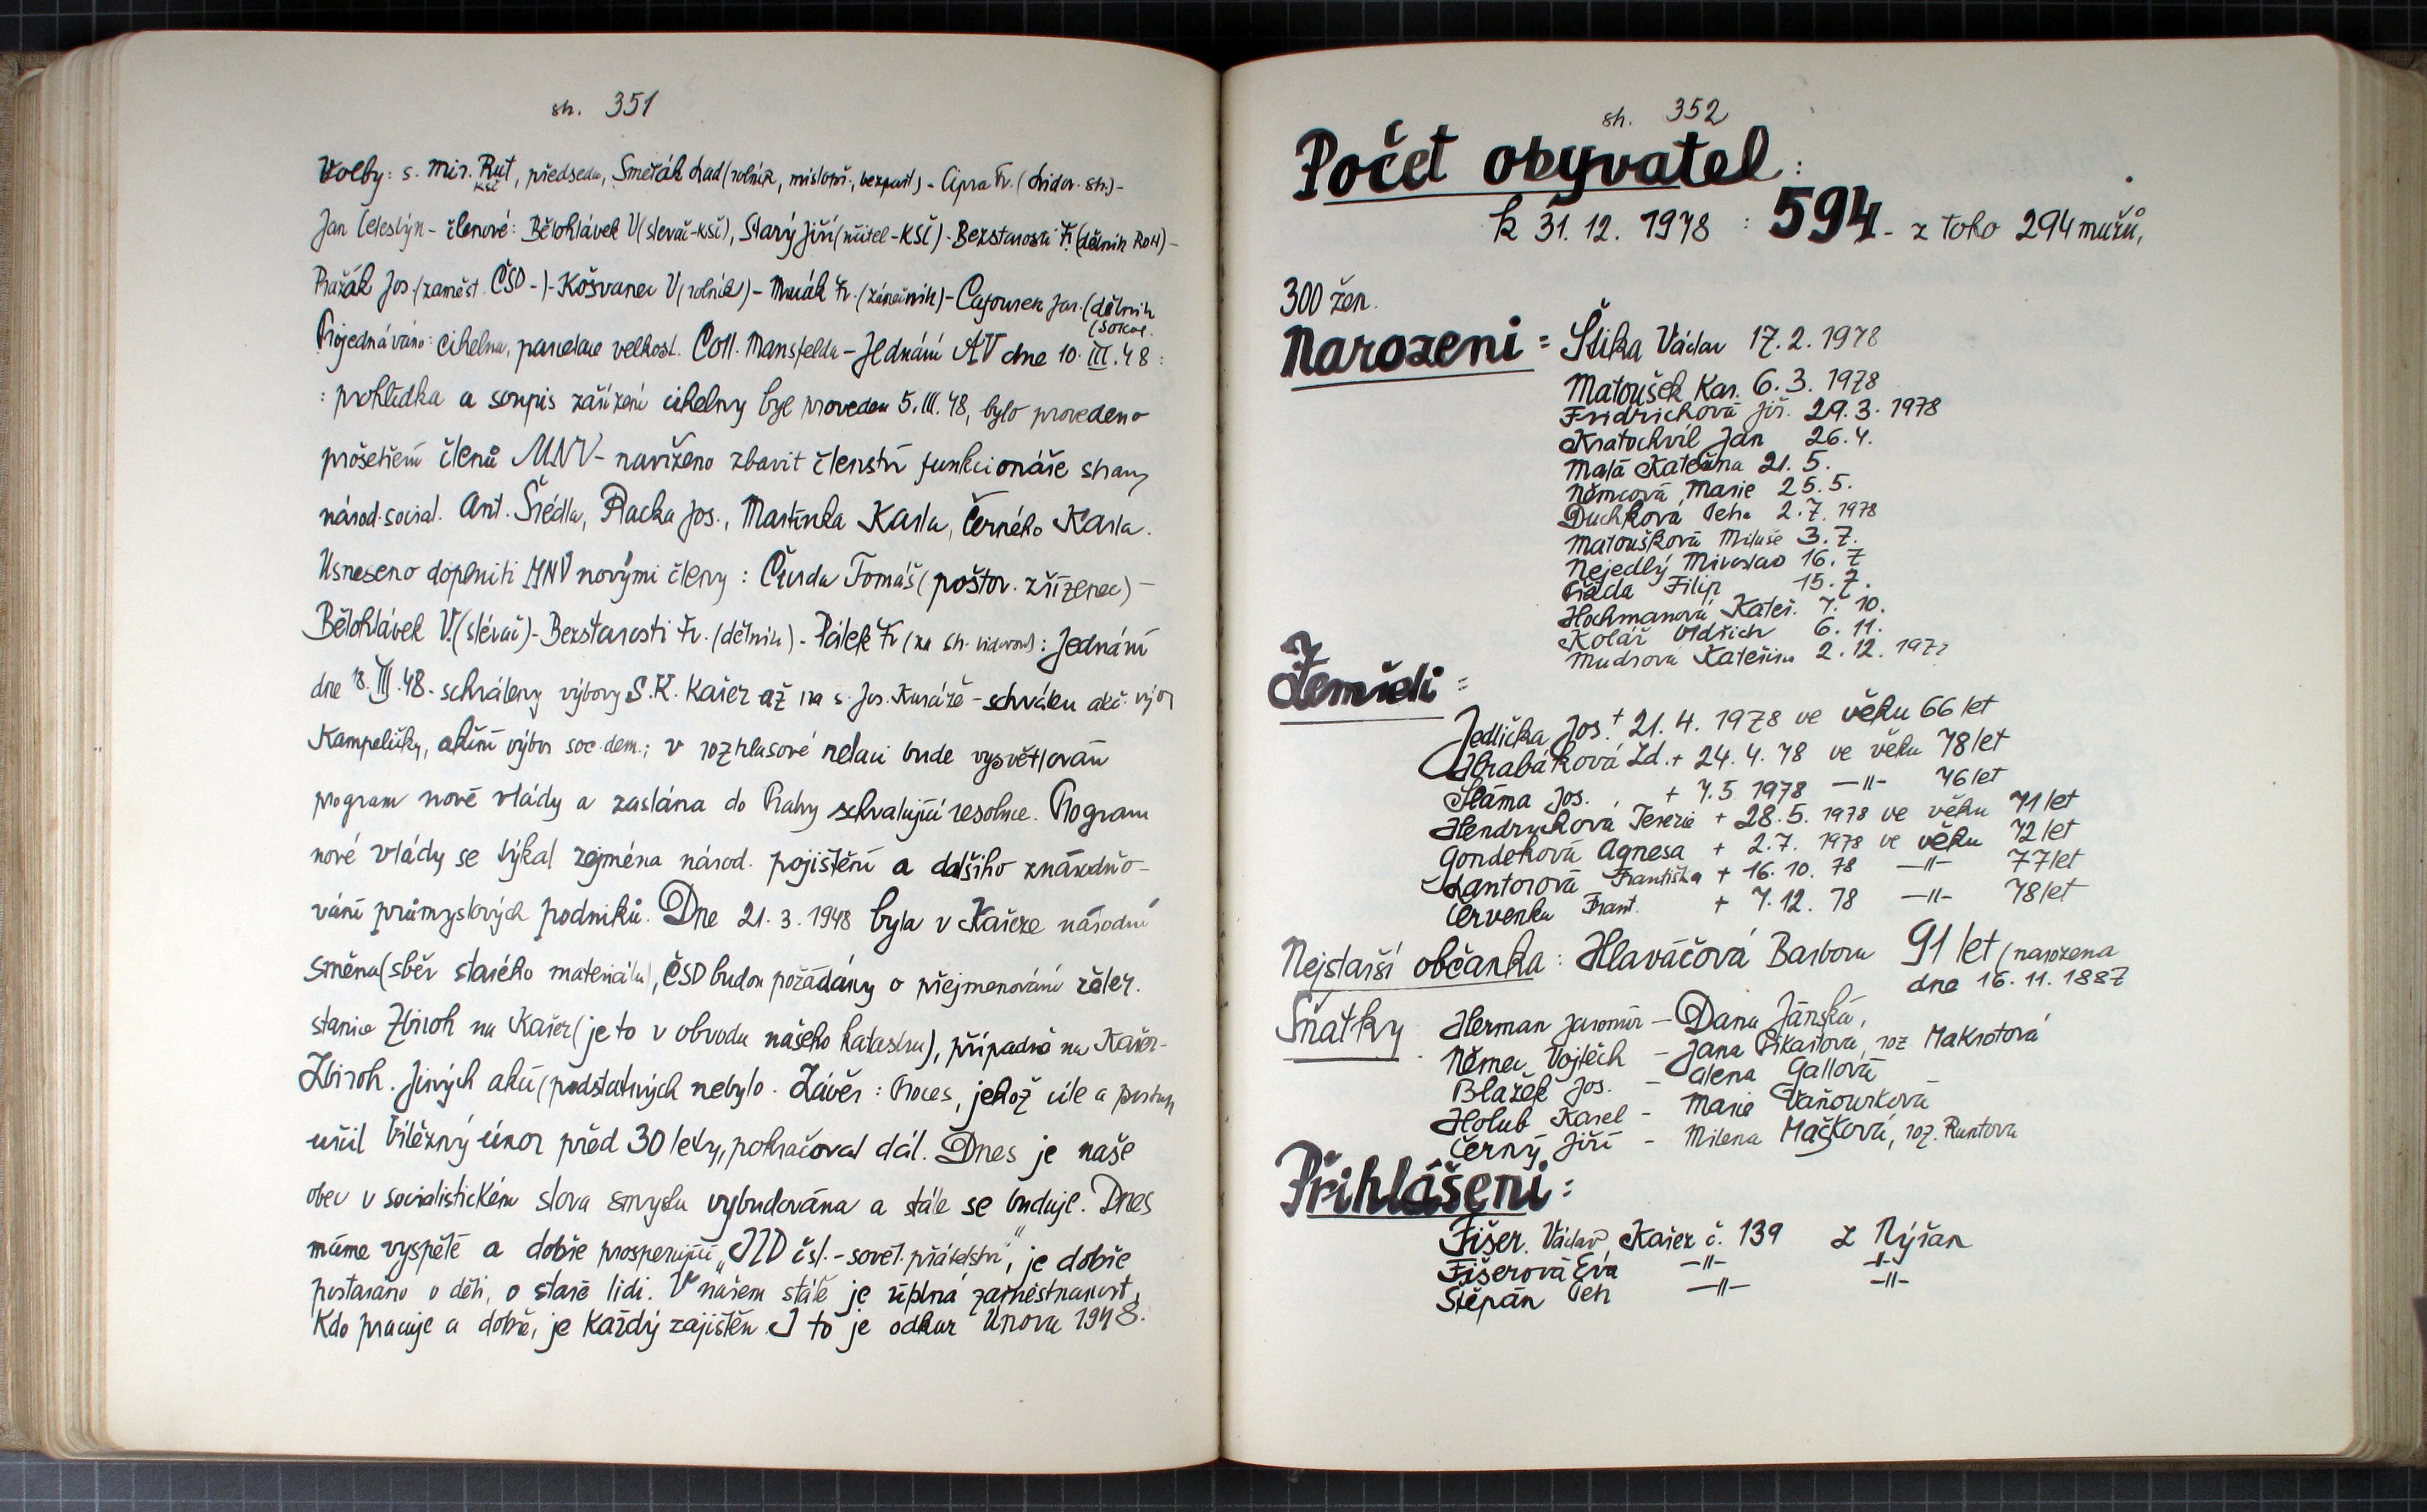 str. 351
Volby: s. Mir. Rut, předseda, Smeták Lad (rolník, místopř., bezpart.) - Cipra Fr. (Lidov. str.) -
KSČ
Jan Celestýn - členové: Bělohlávek V (slevač-KSČ), Starý Jiří (učitel-KSČ) - Bezstarosti Fr. (dělník ROH) -
Pražák Jos. (zaměst. ČSD -) - Košvanec V (rolník) - Fr. - Jar. (dělník
(Sokol.
Projednáváno: cihelna, parcelace velkost. Coll. Mansfelda - Jednání AV dne 10. III. 48:
: prohlídka a soupis zařízení cihelny byl proveden 5. III. 48, bylo provedeno
prošetření členů MNV - navrženo zbavit členství funkcionáře strany
národ. social. Ant. Šrédla, Racka Jos., Martínka Karla, Černého Karla.
Usneseno doplniti MNV novými členy: Čurda Tomáš (poštov. zřízenec) -
Bělohlávek V. (slévač) - Bezstarosti Fr. (dělník) - Pálek Fr (za str. lidovou): Jednání
dne 18. III. 48 - schváleny výbory S.K. Kařez až na s. Jos. - schválen akč. výbor
Kampeličky, akční výbor soc. dem.; v rozhlasové relaci bude vysvětlován
program nové vlády a zaslána do Prahy schvalující resoluce. Program
nové vlády se týkal zejména národ. pojištění a dalšího znárodňo-
vání průmyslových podniků. Dne 21. 3. 1948 byla v Kařeze národní
směna (sběr starého materiálu), ČSD budou požádány o přejmenování želez.
stanice Zbiroh na Kařez (je to v obvodu našeho katastru), případně na Kařez-
Zbiroh. Jiných akcí (podstatných nebylo. Závěr: Proces, jehož cíle a postup
určil Vítězný únor před 30 lety, pokračoval dál. Dnes je naše
obec v socialistickém slova smyslu vybudována a stále se buduje. Dnes
máme vyspělé a dobře prosperující „JZD čsl.-sovět. přátelství", je dobře
postaráno o děti, o staré lidi. V našem státě je úplná zaměstnanost,
Kdo pracuje a dobře, je každý zajištěn. I to je odkaz Února 1948.
str. 352
Počet obyvatel:
k 31. 12. 1978 : 594 - z toho 294 mužů,
300 žen.
Narozeni = Štika Václav 17. 2. 1978
Matoušek Kar. 6. 3. 1978
Fridrichová Jiř. 29. 3. 1978
Kratochvíl Jan 26. 4.
Malá Kateřina 21. 5.
Němcová Marie 25. 5.
Duchková Petra 2. 7. 1978
Matoušková Miluše 3. 7.
Nejedlý Miroslav 16. 7
Filip 15. 7.
Hochmanová Kateř. 7. 10.
Kolář Oldřich 6. 11.
Mudrová Kateřina 2. 12. 1978
Zemřeli =
Jedlička Jos. + 21. 4. 1978 ve věku 66 let
Hrabáková Zd. + 24. 4. 78 ve věku 78 let
Sláma Jos. , + 7. 5 1978 —"— 76 let
Hendrychová Terezie + 28. 5. 1978 ve věku 71 let
Gondeková Agnesa + 2. 7. 1978 ve věku 72 let
Kantorová Františka + 16. 10. 78 —"— 77 let
Červenka Frant. + 7. 12. 78 —"— 78 let
Nejstarší občanka: Hlaváčová Barbora 91 let (narozena
dne 16. 11. 1887
Sňatky. Herman Jaromír - Dana Jánská,
Němec Vojtěch - Jana Pikartová, roz Makrotová
Blažek Jos. - Alena Gallová
Holub Karel - Marie Vaňourková
Černý Jiří - Milena Mačková, roz. Runtová
Přihlášeni:
Fišer. Václav, Kařez č. 139 Z Nýřan
Fišerová Eva —"— —"—
Štěpán Petr —"— —"—